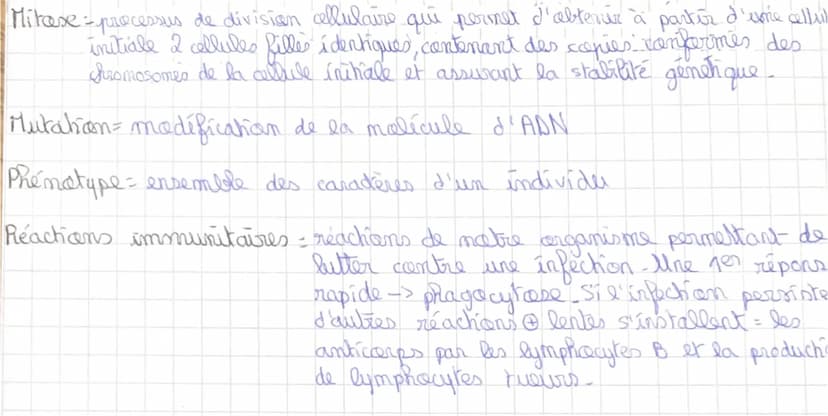 Mitose = processus de division cellulaire qui permet d'obtenir à partir d'une cellul
initiale 2 cellules filles identiques, contenant des copies conformes des
chromosomes de la cellule initiale et assurant la stabilité génétique.
Mutation = modification de la molécule d'ADN
Phénotype = ensemble des caractères d'un individu
Réactions immunitaires = réactions de notre organisme permettant de
lutter contre une infection. Une 1er répons
rapide -> phagocytose. Si l'infection persiste
d'autres réactions ⊕ lentes s'installent = les
anticorps par les lymphocytes B et la producti
de lymphocytes tueurs.